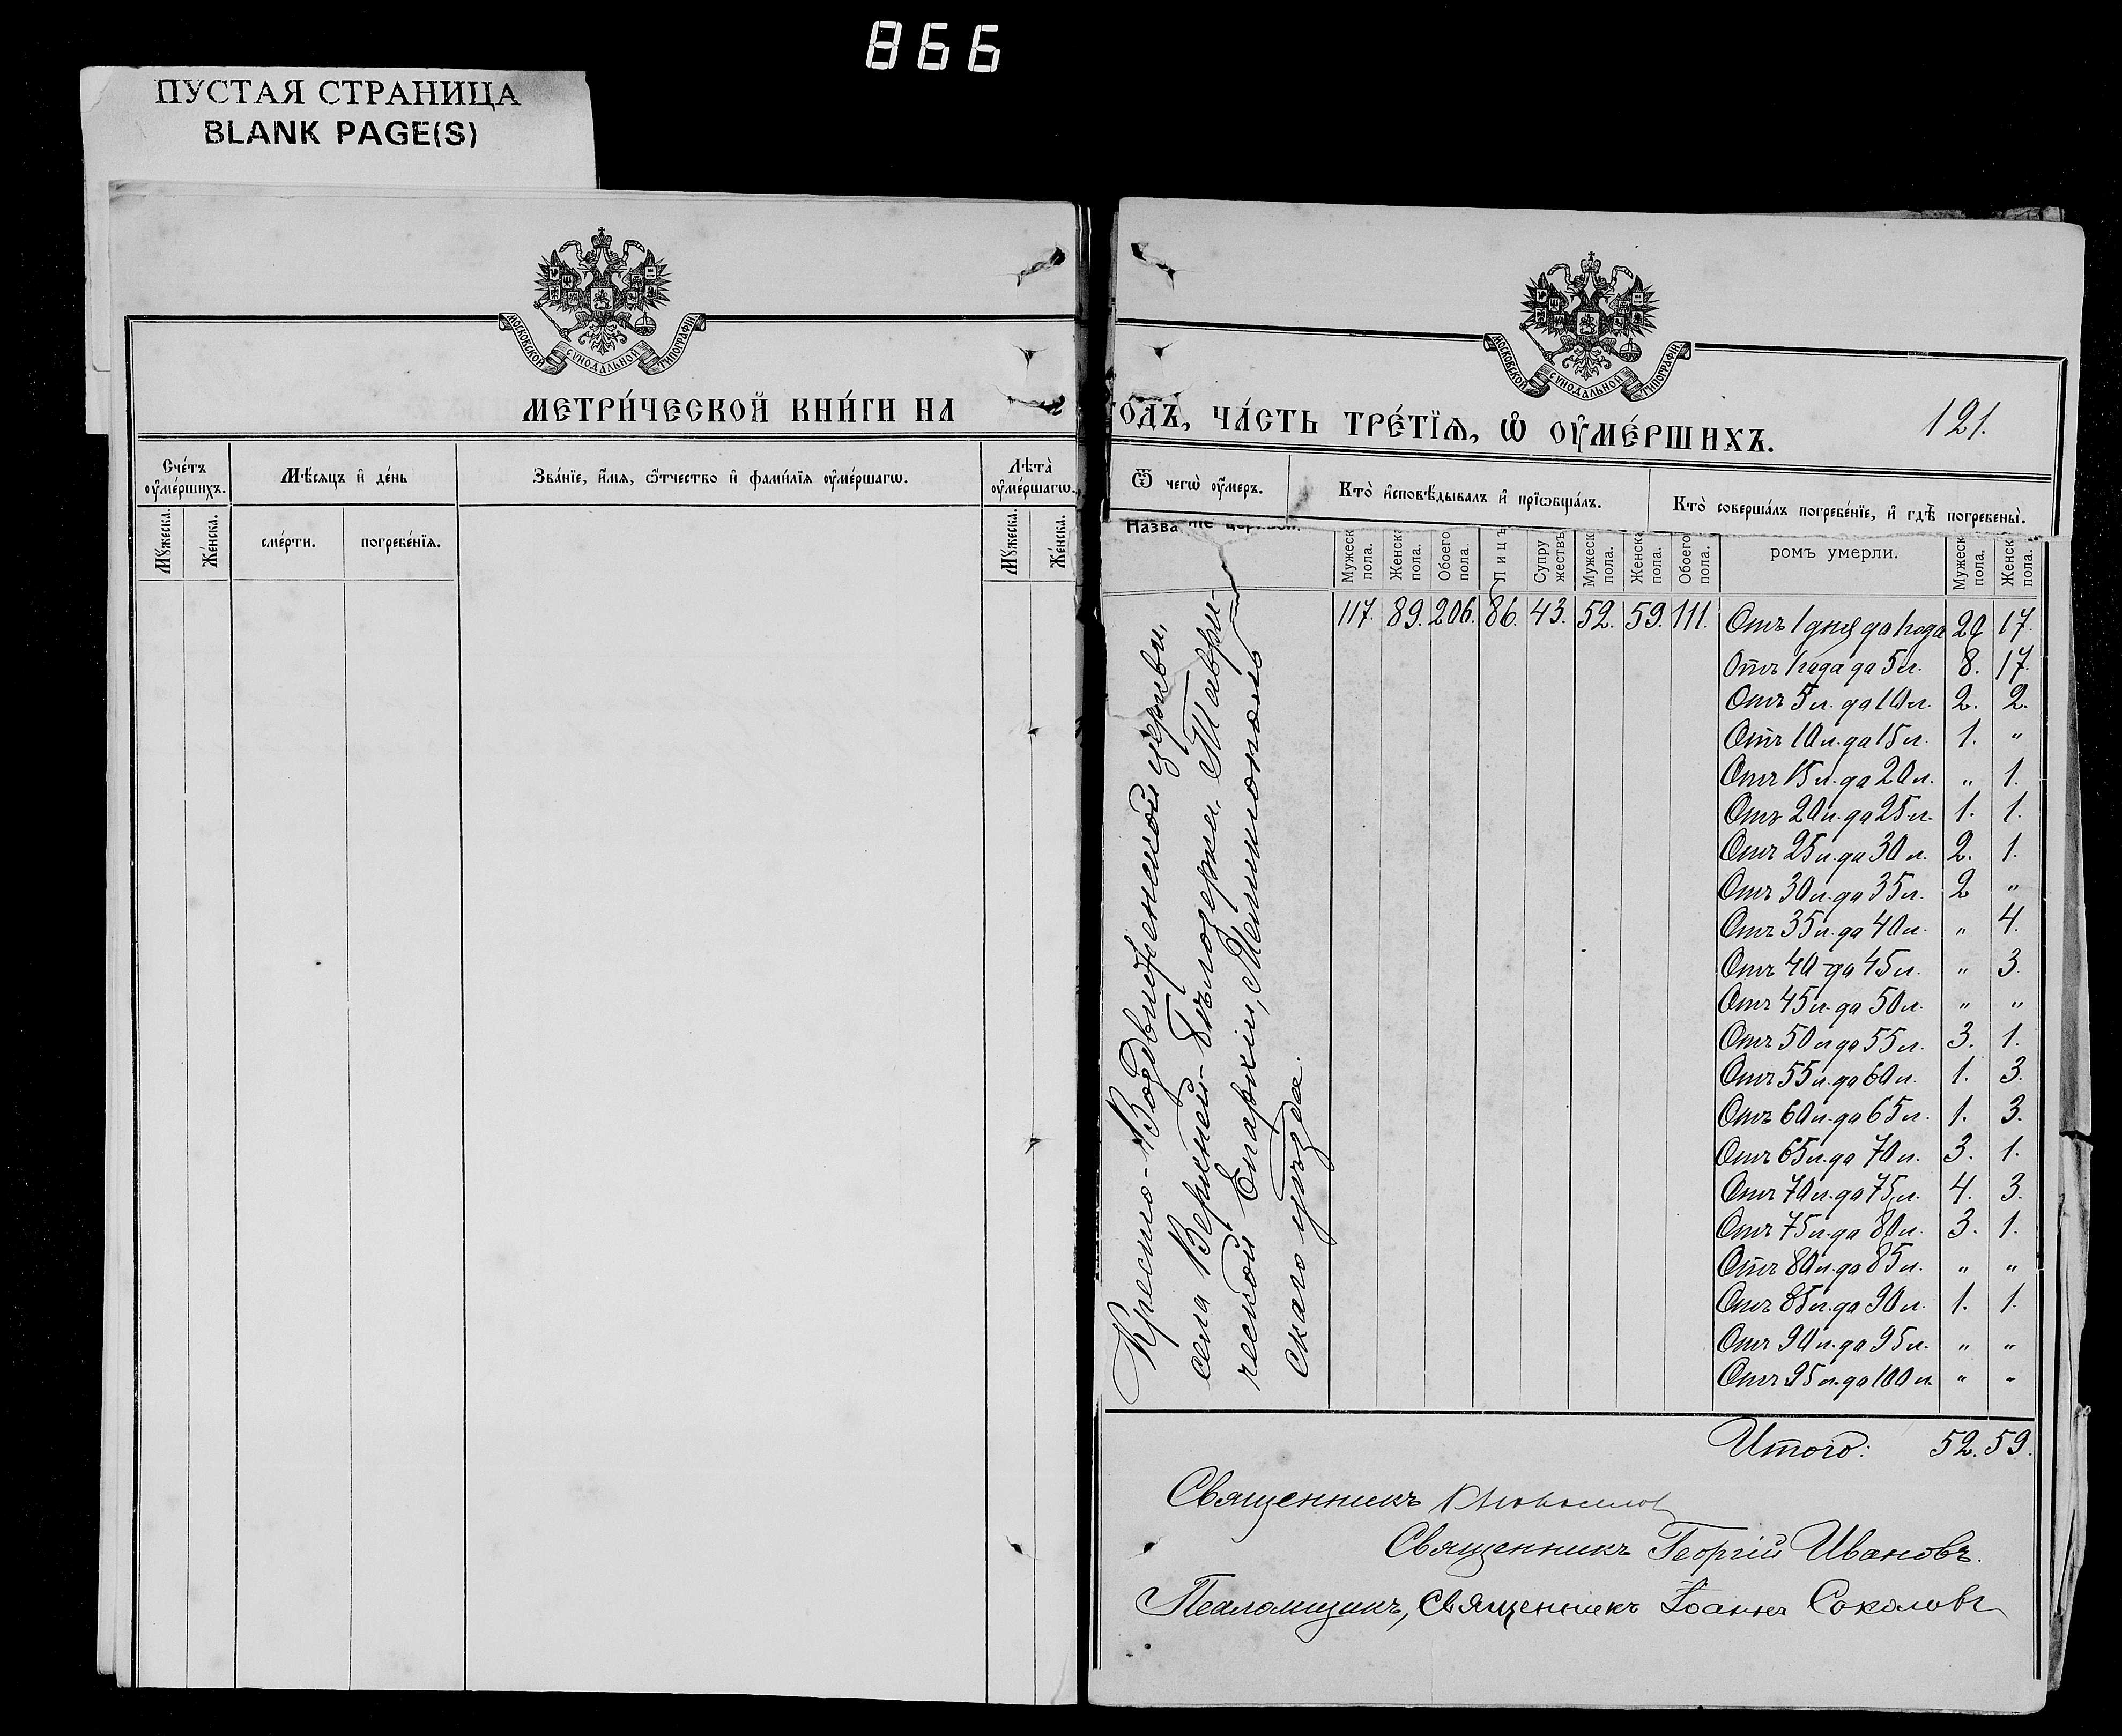 866
ПУСТАЯ СТРАНИЦА
BLANK PAGE(S)
МОСКОВСКОЙ СѴНОДАЛЬНОЙ ТИПОГРАФІИ
МЕТРИ́ЧЕСКОЙ КНИ́ГИ НА
Сче́тъ ᲂу҆ме́ршихъ.
Мѣ́сяцъ и҆ де́нь
Зва́нїе, и҆́мя, ѻ҆́тчество и҆ фами́лїя ᲂу҆ме́ршагѡ.
Лѣта̀ ᲂу҆ме́ршагѡ.
Мꙋ́жеска.
Же́нска.
сме́рти.
погребе́нїя.
Мꙋ́жеска.
Же́нска.
МОСКОВСКОЙ СѴНОДАЛЬНОЙ ТИПОГРАФІИ
ГОДЪ, ЧА́СТЬ ТРЕ́ТЇѦ, Ѡ҆ ОУ҆МЕ́РШИХЪ.
121.
Ѿ чегѡ̀ ᲂу҆́меръ.
Кто̀ и҆сповѣ́дывалъ и҆ прїѡбща́лъ.
Кто̀ соверша́лъ погребе́нїе, и҆ гдѣ̀ погребены̀.
Мужеск пола.
Женск пола.
Обоего пола.
Лицъ
Супру жествъ
Мужеск пола.
Женск пола.
Обоего пола.
ромъ умерли.
Мужеск пола.
Женск пола.
Кресто-Воздвиженской церкви,
села Верхней-Бѣлозерки, Таври-
ческой Епархіи, Мелитополь-
скаго уѣзда.
117. 89. 206. 86. 43. 52. 59. 111.
Отъ 1 дня до 1 года 20 17.
Отъ 1 года до 5 л. 8. 17.
Отъ 5 л. до 10 л. 2. 2.
Отъ 10 л. до 15 л. 1. "
Отъ 15 л. до 20 л. " 1.
Отъ 20 л. до 25 л. 1. 1.
Отъ 25 л. до 30 л. 2. 1.
Отъ 30 л. до 35 л. 2 "
Отъ 35 л. до 40 л. " 4.
Отъ 40 до 45 л. " 3.
Отъ 45 л. до 50 л. " "
Отъ 50 л. до 55 л. 3. 1.
Отъ 55 л. до 60 л. 1. 3.
Отъ 60 л. до 65 л. 1. 3.
Отъ 65 л. до 70 л. 3. 1.
Отъ 70 л. до 75 л. 4. 3.
Отъ 75 л. до 80 л. 3. 1.
Отъ 80 л. до 85 л. " "
Отъ 85 л. до 90 л. 1. 1.
Отъ 90 л. до 95 л. " "
Отъ 95 л. до 100 л. " "
Итого: 52. 59.
Священникъ
Священникъ Георгій Ивановъ.
Псаломщикъ, священникъ Іоаннъ Соколовъ